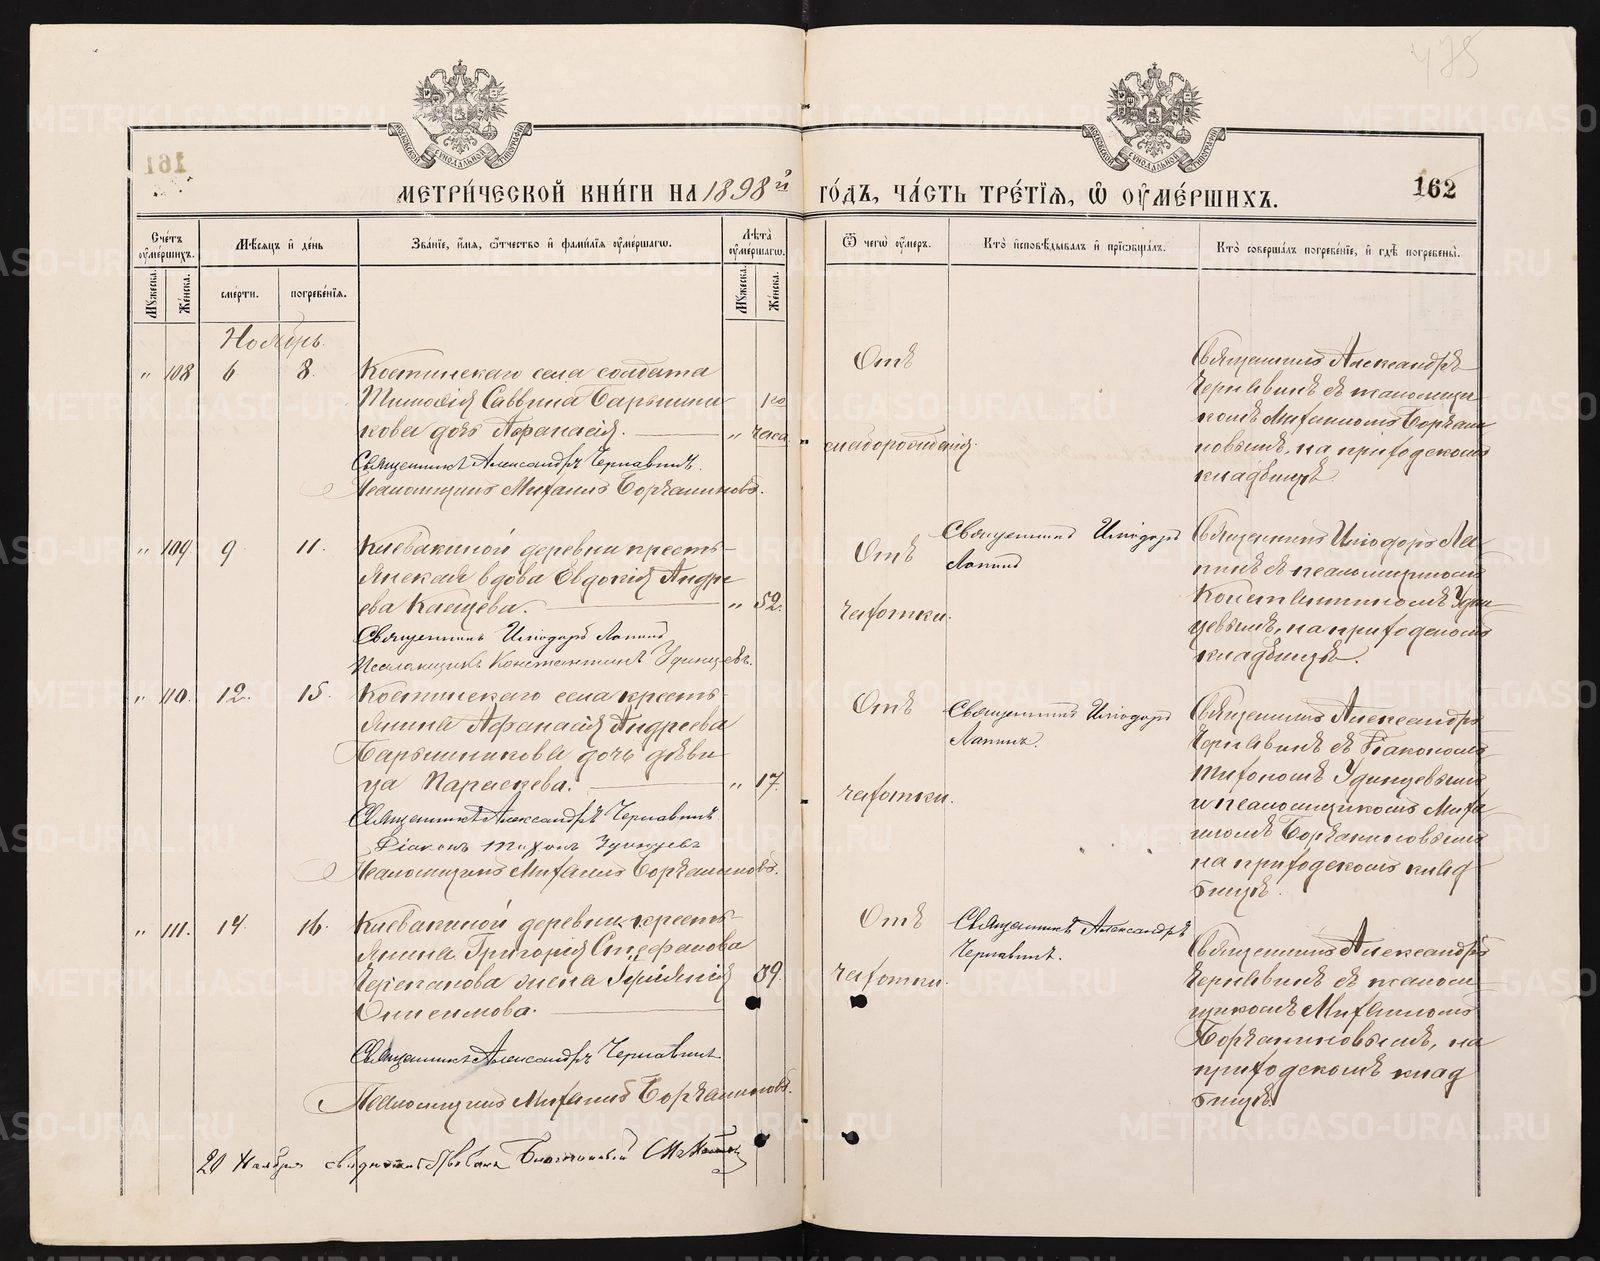 475
161
162
МЕТРИ́ЧЕСКОЙ КНИ́ГИ НА 1898й ГО́ДЪ, ЧА́СТЬ ТРЕ́ТЇѦ, Ѽ ОУМЕ́РШИХЪ.
Сче́тъ оумершихъ.
Мѣ́сяцъ и де́нь
Зва́нїе, и́мя, о́тчество и фами́лїя оуме́ршагѡ.
Лѣта̀ оуме́ршагѡ.
Ѿ чегѡ̀ оу́меръ.
Кто̀ исповѣ́дывалъ и прїѡбща́лъ.
Кто̀ соверша́лъ погребе́нїе, и гдѣ̀ погребены̀.
Му́жеска.
Же́нска.
сме́рти.
погребе́нїя.
Му́жеска.
Же́нска.
Ноябрь.
" 108 6 8.
Костинскаго села солдата
Тимоѳія Саввина Барышни-
кова дочь Афанасія. " часа
Священникъ Александръ Чернавинъ.
Псаломщикъ Михаилъ Боркалиновъ.
Отъ
слаборожденія.
Священникъ Александръ
Чернавинъ съ псаломщи-
комъ Михаиломъ Боркали-
новымъ, на приходскомъ
кладбищѣ.
" 109 9 11.
Клевакиной деревни кресть-
янская вдова Евдокія Андре
ева Кащеева. " 52.
Священникъ Илиодоръ Лапинъ
Псаломщикъ Константинъ Удинцевъ.
Отъ
чахотки.
Священникъ Илиодоръ
Лапинъ
Священникъ Илиодоръ Ла-
пинъ съ псаломщикомъ
Константиномъ Удин-
цевымъ, на приходскомъ
кладбищѣ.
" 110. 12. 15.
Костинскаго села кресть-
янина Афанасія Андреева
Барышникова дочь дѣви-
ца Параскева. " 17.
Священникъ Александръ Чернавинъ
Діаконъ Тихонъ Удинцевъ
Псаломщикъ Михаилъ Боркалиновъ.
Отъ
чахотки.
Священникъ Илиодоръ
Лапинъ.
Священникъ Александръ
Чернавинъ съ Діакономъ
Тихономъ Удинцевымъ
и псаломщикомъ Миха
иломъ Боркалиновымъ
на приходскомъ клад
бищѣ.
" 111. 14. 16.
Клевакиной деревни кресть-
янина Григорія Стефанова
Черепанова жена Іуліянія 39.
Онисимова.
Священникъ Александръ Чернавинъ
Псаломщикъ Михаилъ Боркалиновъ.
Отъ
чахотки.
Священникъ Александръ
Чернавинъ.
Священникъ Александръ
Чернавинъ съ псалом-
щикомъ Михаиломъ
Боркалиновымъ, на
приходскомъ клад
бищѣ.
20 Ноября